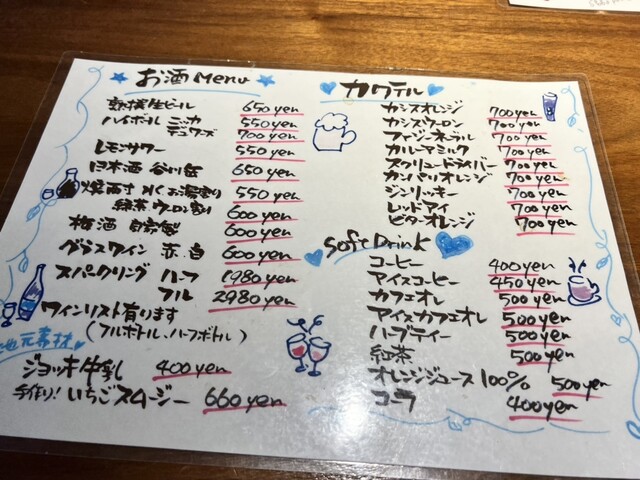 お酒 Menu
生ビール 650yen
ハイボール ニッカ 550yen
デュワーズ 700yen
レモンサワー 550yen
日本酒 谷川岳 650yen
焼酎 水くお湯割り 550yen
緑茶・ウーロン割り 600yen
梅酒 自家製 600yen
グラスワイン 赤、白 600yen
スパークリング ハーフ 1980yen
フル 2980yen
ワインリスト有ります
(フルボトル、ハーフボトル)
地元素材
ジョッキ牛乳 400yen
手作り! いちごスムージー 660yen
カクテル
カシスオレンジ 700yen
カシスウーロン 700yen
ファジーネーブル 700yen
カルーアミルク 700yen
スクリュードライバー 700yen
カンパリオレンジ 700yen
ジンリッキー 700yen
レッドアイ 700yen
ビターオレンジ 700yen
Soft Drink
コーヒー 400yen
アイスコーヒー 450yen
カフェオレ 500yen
アイスカフェオレ 500yen
ハーブティー 500yen
紅茶 500yen
オレンジジュース 100% 500yen
コーラ 400yen